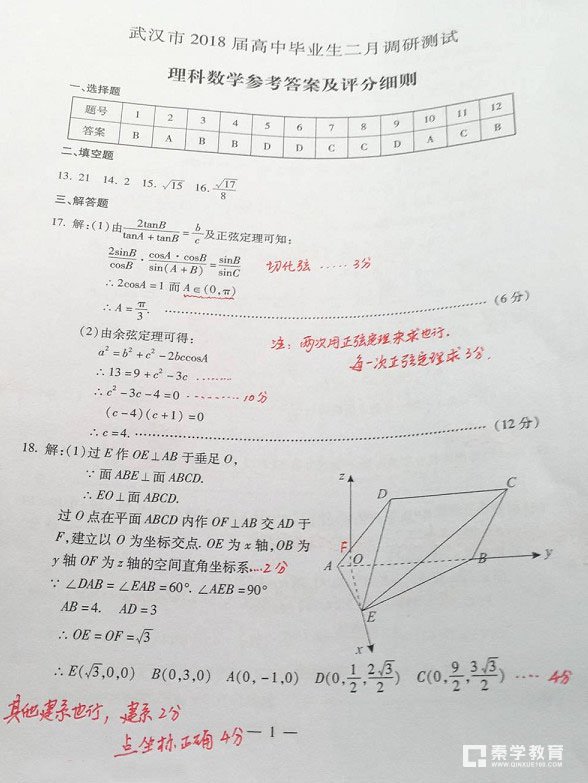 武汉市 2018 届高中毕业生二月调研测试
理科数学参考答案及评分细则
一、选择题
题号 1 2 3 4 5 6 7 8 9 10 11 12
答案 B A B B D D C C D A C B
二、填空题
13. 21 14. 2 15. √15 16. √17/8
三、解答题
17. 解:(1)由 2tanB/(tanA+tanB) = b/c 及正弦定理可知:
2sinB/cosB · cosA·cosB/sin(A+B) = sinB/sinC
切化弦 ······ 3分
∴ 2cosA=1 而 A∈(0,π)
∴ A= π/3. ·················· (6分)
(2)由余弦定理可得:
注: 两次用正弦定理来求也行.
a²=b²+c²-2bccosA
每一次正弦定理求3分.
∴ 13=9+c²-3c ········
∴ c²-3c-4=0 ········ 10分
(c-4)(c+1)=0
∴ c=4. ·················· (12分)
18. 解:(1)过 E 作 OE⊥AB 于垂足 O,
∵ 面 ABE⊥面 ABCD.
∴ EO⊥面 ABCD.
过 O 点在平面 ABCD 内作 OF⊥AB 交 AD 于
F,建立以 O 为坐标交点. OE 为 x 轴,OB 为
y 轴 OF 为 z 轴的空间直角坐标系.··· 2分
∵ ∠DAB=∠EAB=60°. ∠AEB=90°
AB=4. AD=3
∴ OE=OF=√3
z
D
C
F
A
O
B
y
E
x
∴ E(√3,0,0) B(0,3,0) A(0,-1,0) D(0, 1/2, 2√3/2) C(0, 9/2, 3√3/2) ···· 4分
其他建系也行, 建系2分
点坐标正确4分
— 1 —
秦学教育
WWW.QINXUE100.COM